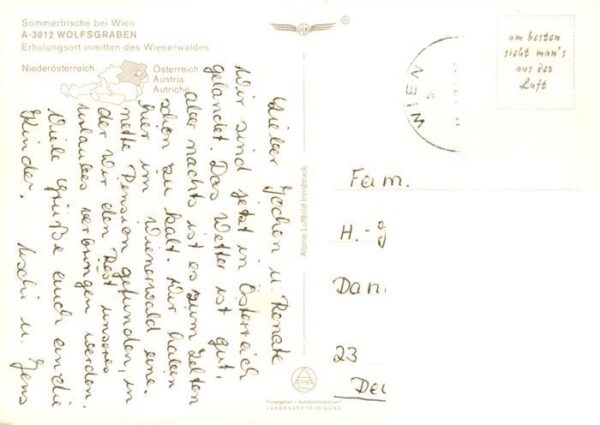 Sommerfrische bei Wien
A-3012 WOLFSGRABEN
Erholungsort inmitten des Wienerwaldes
Niederösterreich
Österreich
Austria
Autriche
®
am besten
sieht man's
aus der
Luft
WIEN
Lieber Jochen u. Renate
Wir sind jetzt in Österreich
gelandet. Das Wetter ist gut,
aber nachts ist es zum Zelten
schon zu kalt. Wir haben
hier im Wienerwald eine
nette Pension gefunden, in
der wir den Rest unseres
Urlaubes verbringen werden.
Viele Grüße auch an die
Kinder. Uschi u. Jens
Alpine Luftbild Innsbruck
Fam.
H.-
Dan
23
LANDESVERTEIDIGUNG